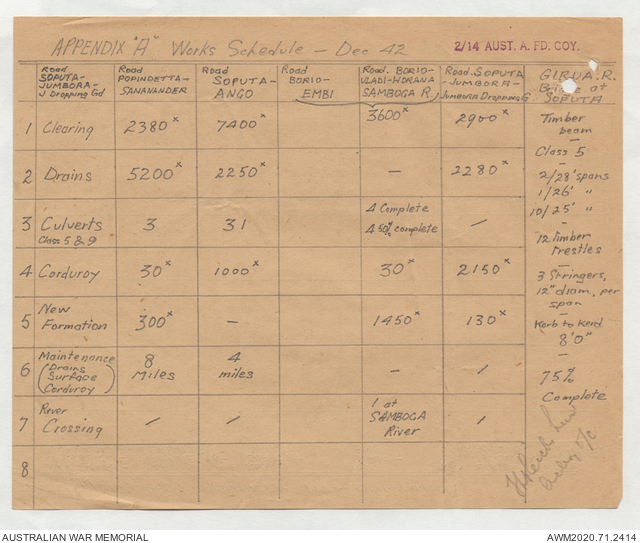 APPENDIX "A" Works Schedule — Dec 42
2/14 AUST. A. FD. COY.
Road SOPUTA- JUMBORA- J Dropping Gd
Road POPINDETTA- SANANANDER
Road SOPUTA- ANGO
Road BORIO- EMBI
Road. BORIO- VLADI-HORANA SAMBOGA R.
Road. SOPUTA JUMBORA- JUMBORA Dropping G
GIRUA. R. Bridge at SOPUTA
1 Clearing 2380x 7400x 3600x 2900x
2 Drains 5200x 2250x — 2280x
3 Culverts Class 5 & 9 3 31 4 Complete 4 50% complete /
4 Corduroy 30x 1000x 30x 2150x
5 New Formation 300x — 1450x 130x
6 Maintenance (Drains Surface Corduroy) 8 Miles 4 miles — /
7 River Crossing / / 1 at SAMBOGA River /
8
Timber
beam
—
Class 5
—
2/28' spans
1/26' "
10/25' "
—
12 Timber
Trestles
—
3 Stringers,
12" diam, per
span
—
Kerb to Kerd
8'0"
—
75%
Complete
AUSTRALIAN WAR MEMORIAL
AWM2020.71.2414